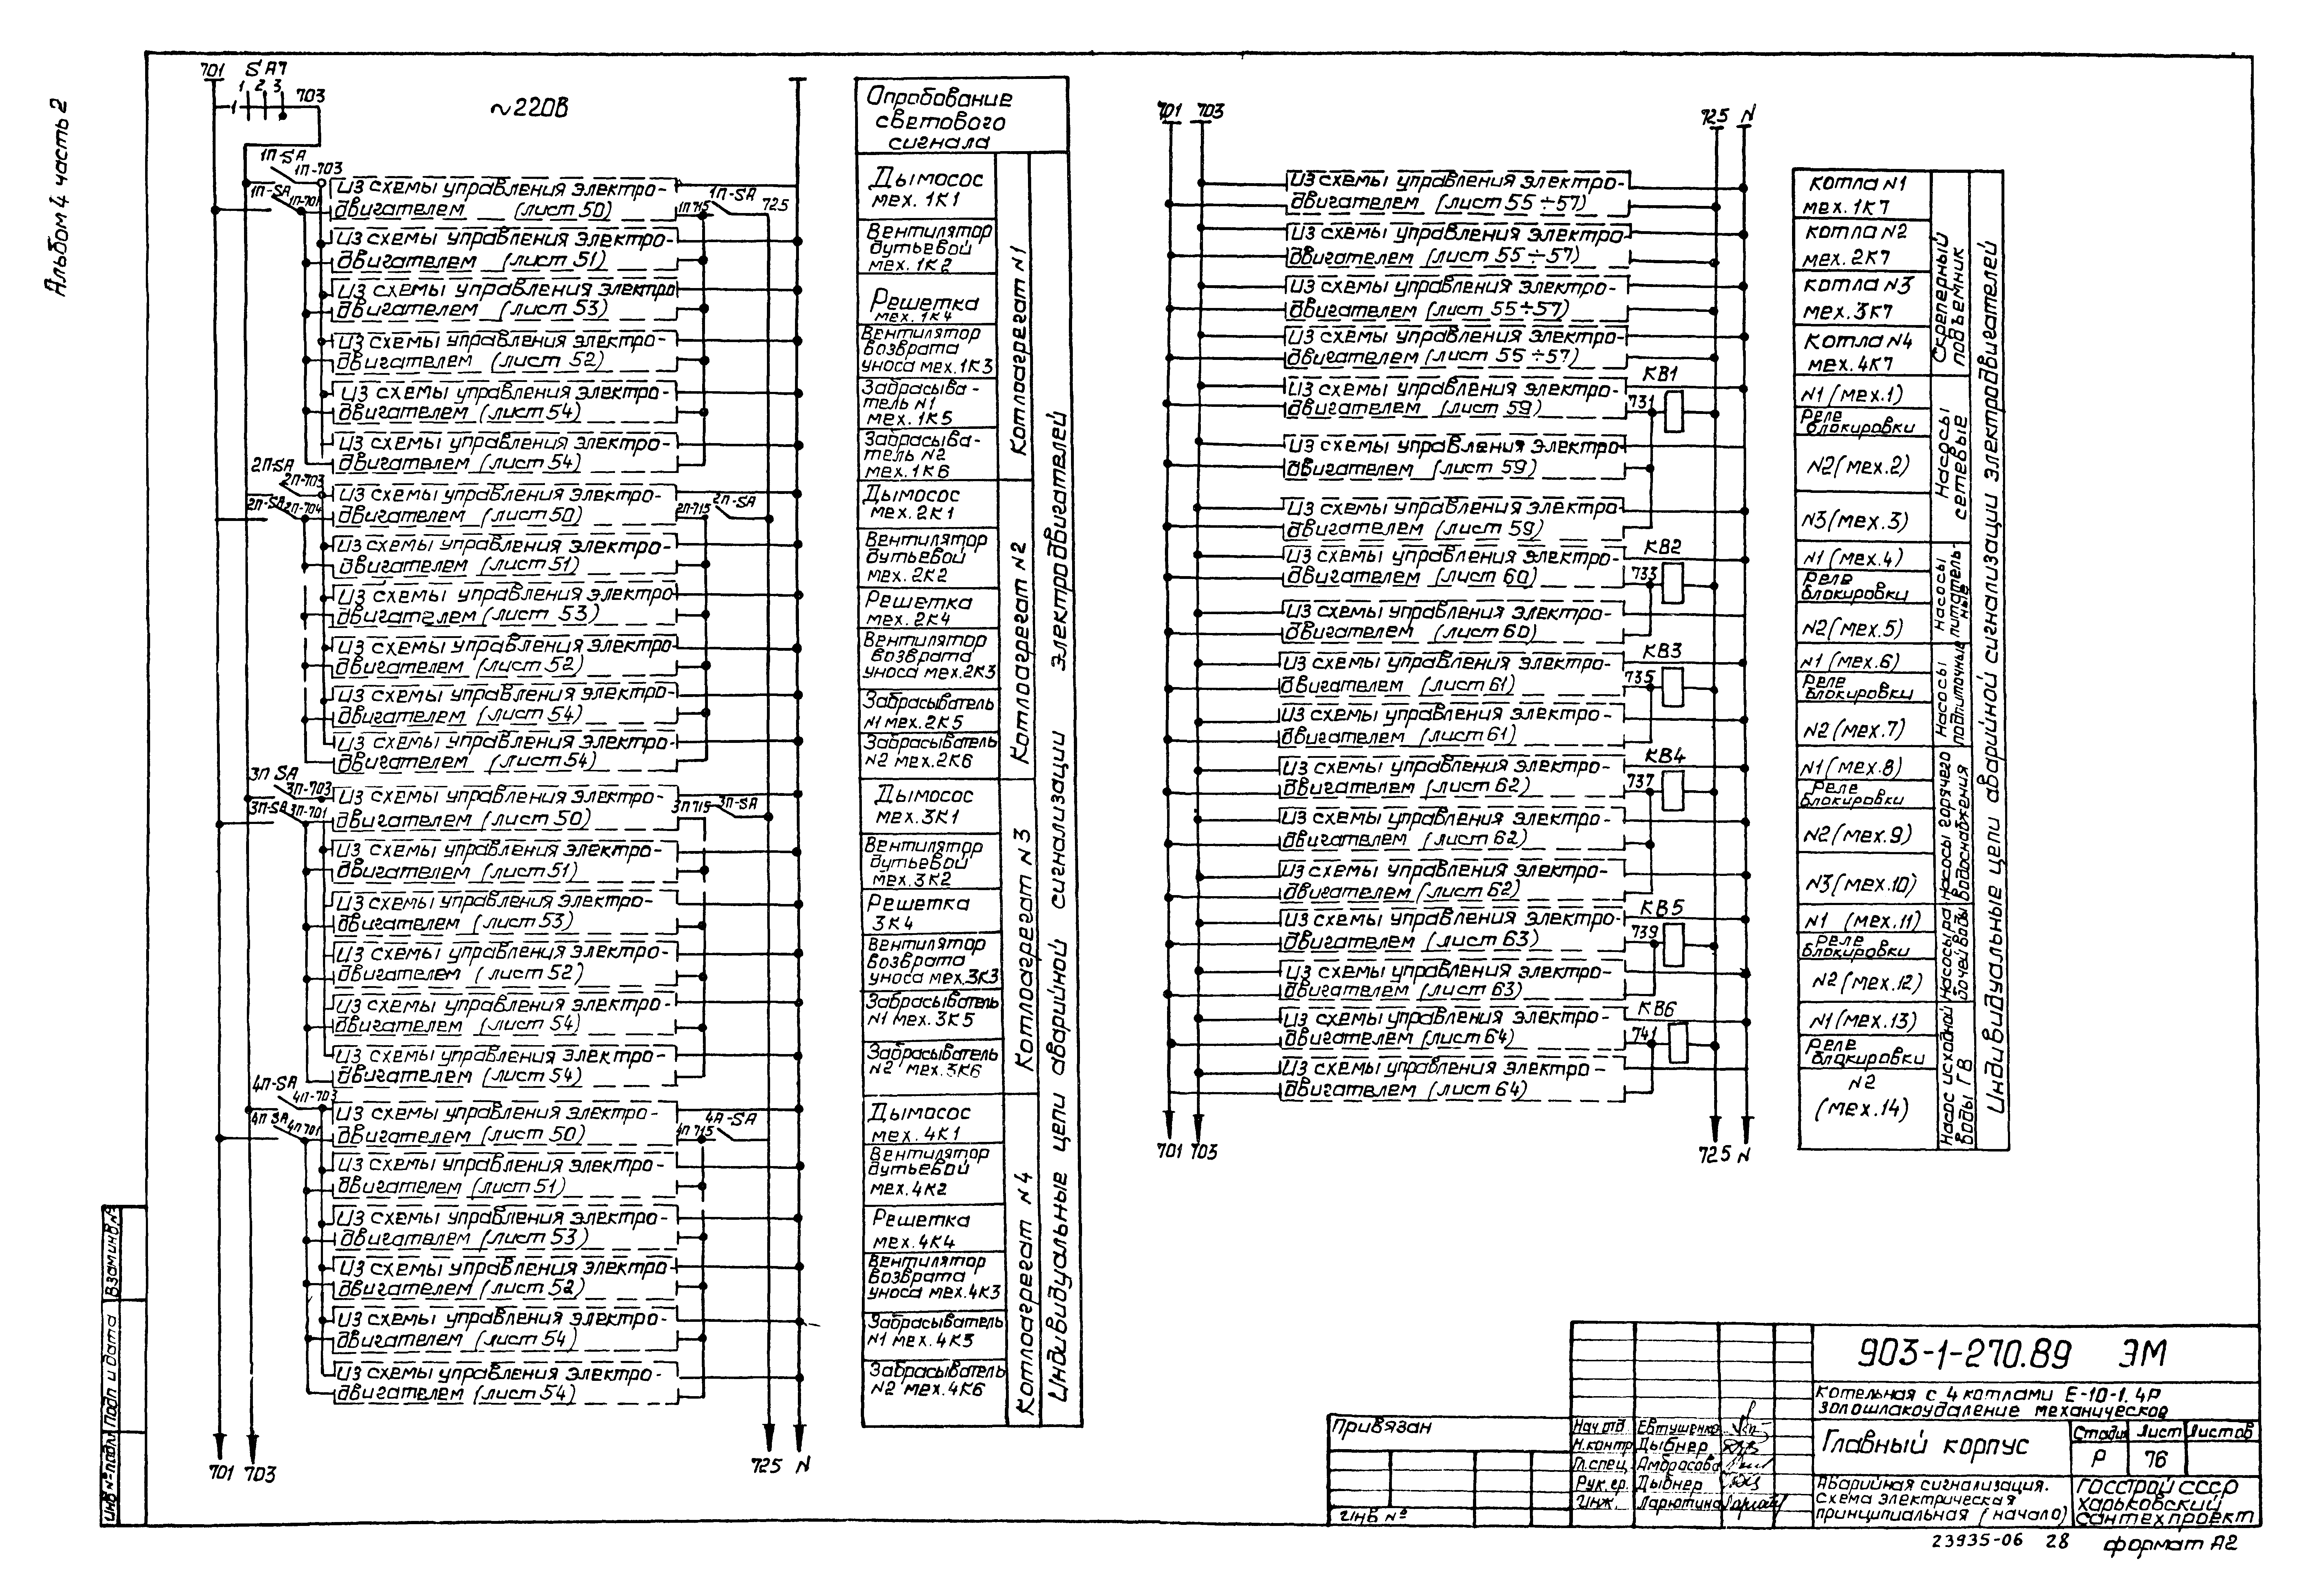 Альбом 4 часть 2
701
SA7
1 2 3
703
1
~220В
1П-SA
1П-703
1П-SA
1П-701
Из схемы управления электро-
двигателем (лист 50)
1П-SA
1П715
725
Из схемы управления электро-
двигателем (лист 51)
Из схемы управления электро
двигателем (лист 53)
Из схемы управления электро-
двигателем (лист 52)
Из схемы управления электро-
двигателем (лист 54)
Из схемы управления электро-
двигателем (лист 54)
2П-SA
2П-703
2П-SA
2П-704
Из схемы управления электро-
двигателем (лист 50)
2П-SA
2П-715
Из схемы управления электро-
двигателем (лист 51)
Из схемы управления электро
двигателем (лист 53)
Из схемы управления электро-
двигателем (лист 52)
Из схемы управления электро-
двигателем (лист 54)
Из схемы управления электро-
двигателем (лист 54)
3П SA
3П-703
3П-SA
3П-701
Из схемы управления электро-
двигателем (лист 50)
3П715
3П-SA
Из схемы управления электро-
двигателем (лист 51)
Из схемы управления электро-
двигателем (лист 53)
Из схемы управления электро-
двигателем (лист 52)
Из схемы управления электро-
двигателем (лист 54)
Из схемы управления электро-
двигателем (лист 54)
4П-SA
4П-703
4П SA
4П701
Из схемы управления электро-
двигателем (лист 50)
4П715
4А-SA
Из схемы управления электро-
двигателем (лист 51)
Из схемы управления электро-
двигателем (лист 53)
Из схемы управления электро-
двигателем (лист 52)
Из схемы управления электро-
двигателем (лист 54)
Из схемы управления электро-
двигателем (лист 54)
701 703
725 N
Опробование
светового
сигнала
Дымосос
мех. 1К1
Вентилятор
дутьевой
мех. 1К2
Решетка
мех. 1К4
Вентилятор
возврата
уноса мех.1К3
Забрасыва-
тель N1
мех. 1К5
Забрасыва-
тель N2
мех. 1К6
Дымосос
мех. 2К1
Вентилятор
дутьевой
мех. 2К2
Решетка
мех. 2К4
Вентилятор
возврата
уноса мех.2К3
Забрасыватель
N1 мех. 2К5
Забрасыватель
N2 мех.2К6
Дымосос
мех.3К1
Вентилятор
дутьевой
мех. 3К2
Решетка
3К4
Вентилятор
возврата
уноса мех.3К3
Забрасыватель
N1 мех. 3К5
Забрасыватель
N2 мех.3К6
Дымосос
мех. 4К1
Вентилятор
дутьевой
мех. 4К2
Решетка
мех. 4К4
Вентилятор
возврата
уноса мех.4К3
Забрасыватель
N1 мех. 4К5
Забрасыватель
N2 мех.4К6
Котлоагрегат N1
Котлоагрегат N2
Котлоагрегат N3
Котлоагрегат N4
Индивидуальные цепи аварийной сигнализации электродвигателей
701 703
725 N
Из схемы управления электро-
двигателем (лист 55÷57)
Из схемы управления электро
двигателем (лист 55÷57)
Из схемы управления электро-
двигателем (лист 55÷57)
Из схемы управления электро-
двигателем (лист 55÷57)
Из схемы управления электро-
двигателем (лист 59)
КВ1
731
Из схемы управления электро
двигателем (лист 59)
Из схемы управления электро-
двигателем (лист 59)
Из схемы управления электро-
двигателем (лист 60)
КВ2
733
Из схемы управления электро-
двигателем (лист 60)
Из схемы управления электро-
двигателем (лист 61)
КВ3
735
Из схемы управления электро-
двигателем (лист 61)
Из схемы управления электро-
двигателем (лист 62)
КВ4
737
Из схемы управления электро-
двигателем (лист 62)
Из схемы управления электро-
двигателем (лист 62)
Из схемы управления электро-
двигателем (лист 63)
КВ5
739
Из схемы управления электро-
двигателем (лист 63)
Из схемы управления электро-
двигателем (лист 64)
КВ6
741
Из схемы управления электро-
двигателем (лист 64)
701 703
725 N
котла N1
мех. 1К7
котла N2
мех. 2К7
котла N3
мех. 3К7
Котла N4
мех. 4К7
N1 (мех.1)
Реле
блокировки
N2 (мех.2)
N3 (мех.3)
N1 (мех.4)
Реле
блокировки
N2 (мех.5)
N1 (мех.6)
Реле
блокировки
N2 (мех.7)
N1 (мех.8)
Реле
блокировки
N2 (мех.9)
N3 (мех.10)
N1 (мех.11)
Реле
блокировки
N2 (мех.12)
N1 (мех.13)
Реле
блокировки
N2
(мех.14)
Скреперный
подъемник
Насосы
сетевые
Насосы
питатель-
ные
Насосы
подпиточные
Насосы горячего
водоснабжения
Насос исходной
воды ГВ
Индивидуальные цепи аварийной сигнализации электродвигателей
Взам.инв.N
Подп и дата
Инв N подл
903-1-270.89 ЭМ
Котельная с 4 котлами Е-10-1.4Р
золошлакоудаление механическое
Привязан
Инв N
Нач отд Евтушенко
Н.контр Дыбнер
Гл.спец. Амбросова
Рук.гр. Дыбнер
Инж. Ларютина
Главный корпус
Стадия Лист Листов
Р 76
Аварийная сигнализация.
Схема электрическая
принципиальная (начало)
ГОССТРОЙ СССР
Харьковский
Сантехпроект
23935-06 28 формат А2